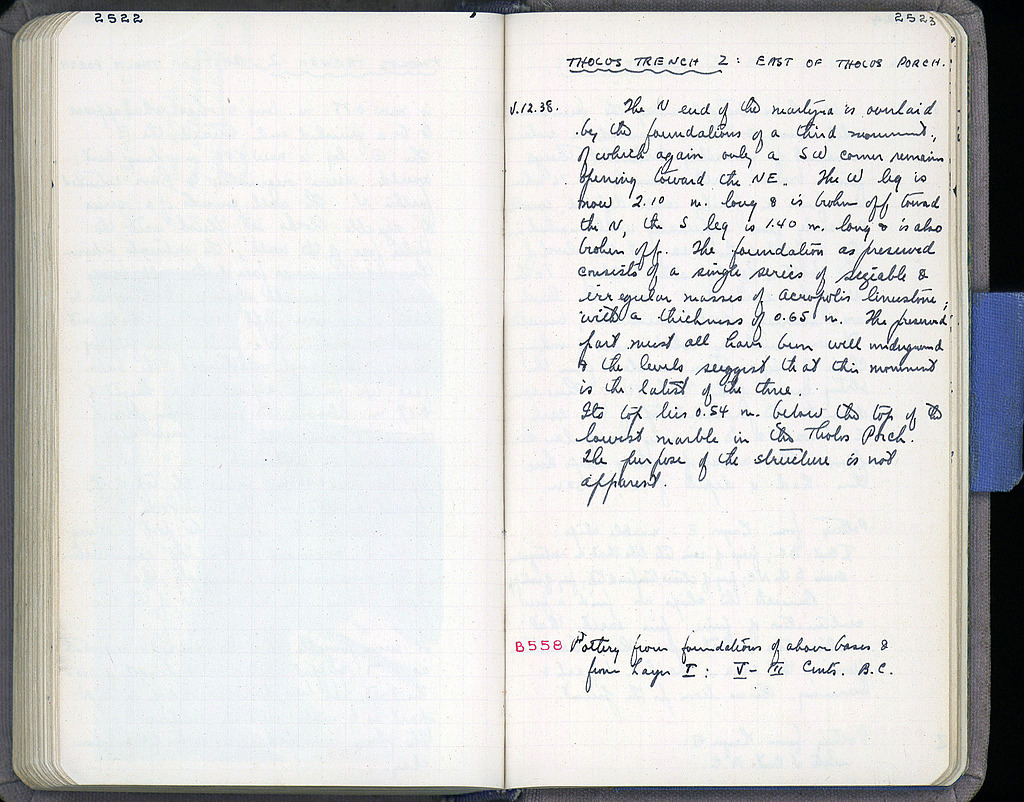 2522
2523
THOLOS TRENCH 2: EAST OF THOLOS PORCH.
V.12.38. The N end of the martyra is overlaid
by the foundations of a third monument,
of which again only a SW corner remains
opening toward the NE. The W leg is
now 2.10 m. long & is broken off toward
the N, the S leg is 1.40 m. long & is also
broken off. The foundation as preserved
consists of a single series of sizeable &
irregular masses of Acropolis limestone,
with a thickness of 0.65 m. The preserved
part must all have been well underground
& the levels suggest that this monument
is the latest of the three.
Its top lies 0.54 m. below the top of the
lowest marble in the Tholos Porch.
The purpose of the structure is not
apparent.
B558 Pottery from foundations of above bases &
from Layer I: V-II Cents. B.C.